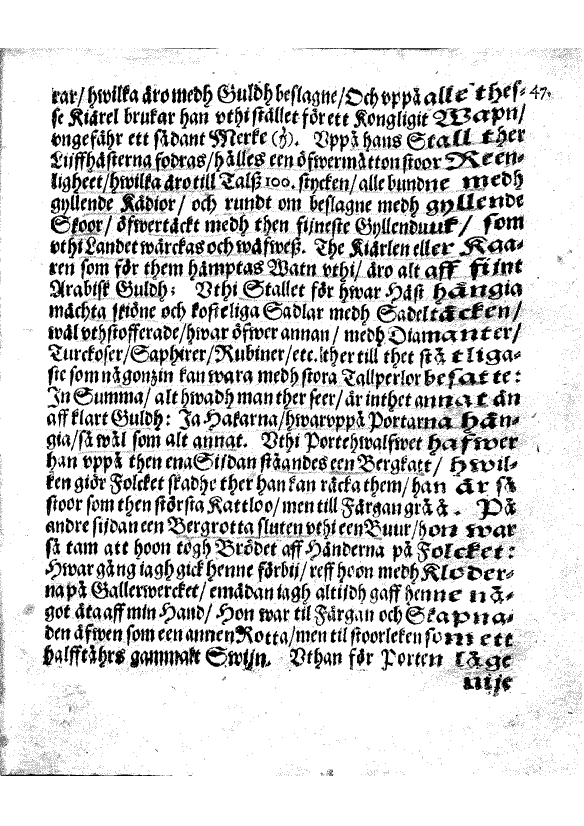 rar/ hwilka äro medh Guldh beslagne/ Och vppå alle thes- 47.
se Kiärel brukar han vthi stället för ett Kongligit Wapn/
vngefähr ett sådant Merke (). Vppå hans Stall ther
Lijffhästerna fodras/ hålles een öfwermåtton stoor Reen-
ligheet/ hwilka äro till Talß 100. stycken/ alle bundne medh
gyllende Kädior/ och rundt om beslagne medh gyllende
Skoor/ öfwertäckt medh then fijneste Gyllenduuk/ som
vthi Landet wärckas och wäfweß. The Kiärlen eller Kaa-
ren som för them hämptas Watn vthi/ äro alt aff fijnt
Arabisk Guldh: Vthi Stallet för hwar Häst hängia
mächta sköne och kosteliga Sadlar medh Sadeltäcken/
wäl vthstofferade/ hwar öfwer annan/ medh Diamanter/
Turckoser/ Saphirer/ Rubiner/ etc. ither till thet ståtliga-
ste som någonzin kan wara medh stora Tallperlor besatte:
In Summa/ alt hwadh man ther seer/ är inthet annat än
aff klart Guldh: Ja Hakarna/ hwarvppå Portarna hän-
gia/ så wäl som alt annat. Vthi Portehwalfwet hafwer
han vppå then ena Sijdan ståandes een Bergkatt/ hwil-
ken giör Folcket skadhe ther han kan räcka them/ han är så
stoor som then största Kattloo/ men till Färgan grå å. På
andre sijdan een Bergrotta sluten vthi een Buur/ hon war
så tam att hoon togh Brödet aff Händerna på Folcket:
Hwar gång iagh gick henne förbij/ reff hoon medh Kloder-
na på Gallerwercket/ emädan iagh altijdh gaff henne nå-
got äta aff min Hand/ Hon war til Färgan och Skapna-
den äfwen som een annen Rotta/ men til stoorleken som ett
halfftåhrs gammalt Swijn. Vthan för Porten låge
nije